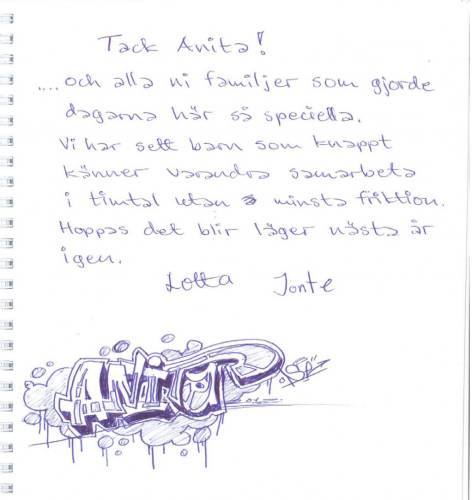 Tack Anita!
....och alla ni familjer som gjorde
dagarna här så speciella.
Vi har sett barn som knappt
känner varandra samarbeta
i timtal utan minsta friktion.
Hoppas det blir läger nästa år
igen.
Lotta Jonte
ANITA